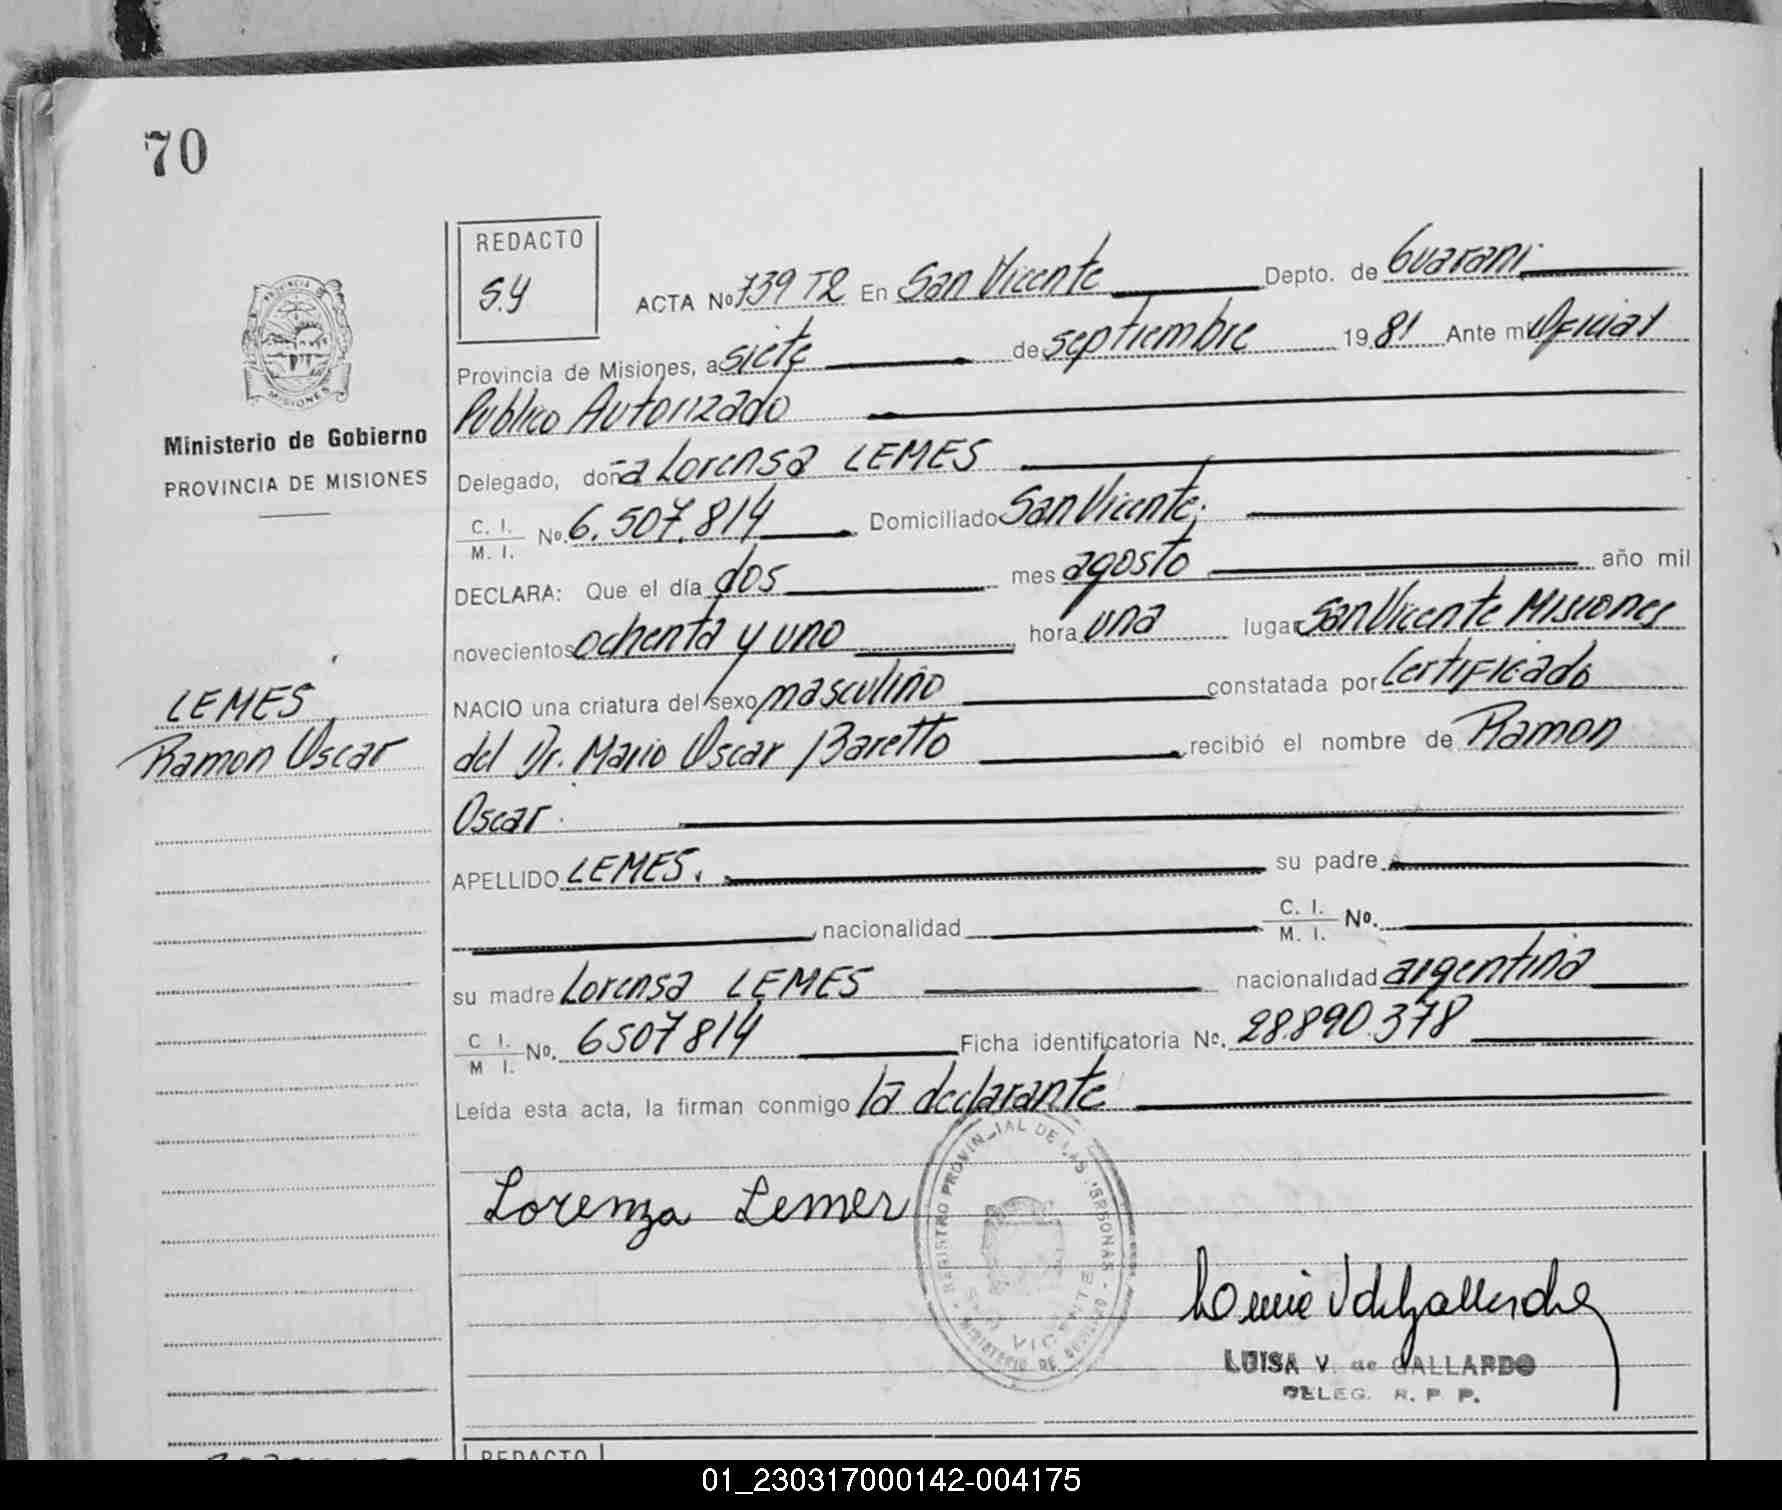 70
REDACTO
S.Y
ACTA No 739 T2 En San Vicente Depto. de Guarani
Provincia de Misiones, a siete de septiembre 1981 Ante mi Oficial
Publico Autorizado
Delegado, doña Lorensa LEMES
C. I.
M. I. No. 6.507.814 Domiciliado San Vicente,
DECLARA: Que el día dos mes agosto año mil
novecientos ochenta y uno hora una lugar San Vicente Misiones
NACIO una criatura del sexo masculino constatada por Certificado
del Dr. Mario Oscar Baretto recibió el nombre de Ramon
Oscar
APELLIDO LEMES. su padre
nacionalidad C. I.
M. I. No.
su madre Lorensa LEMES nacionalidad argentina
C I.
M I. No. 6507814 Ficha identificatoria No. 28.890.378
Leída esta acta, la firman conmigo la declarante
Lorenza Lemes
REGISTRO PROVINCIAL DE LAS PERSONAS
SAN VICENTE
MINISTERIO DE GOBIERNO
LUISA V. de GALLARDO
DELEG. R. P. P.
PROVINCIA DE
MISIONES
Ministerio de Gobierno
PROVINCIA DE MISIONES
LEMES
Ramon Oscar
REDACTO
01_230317000142-004175